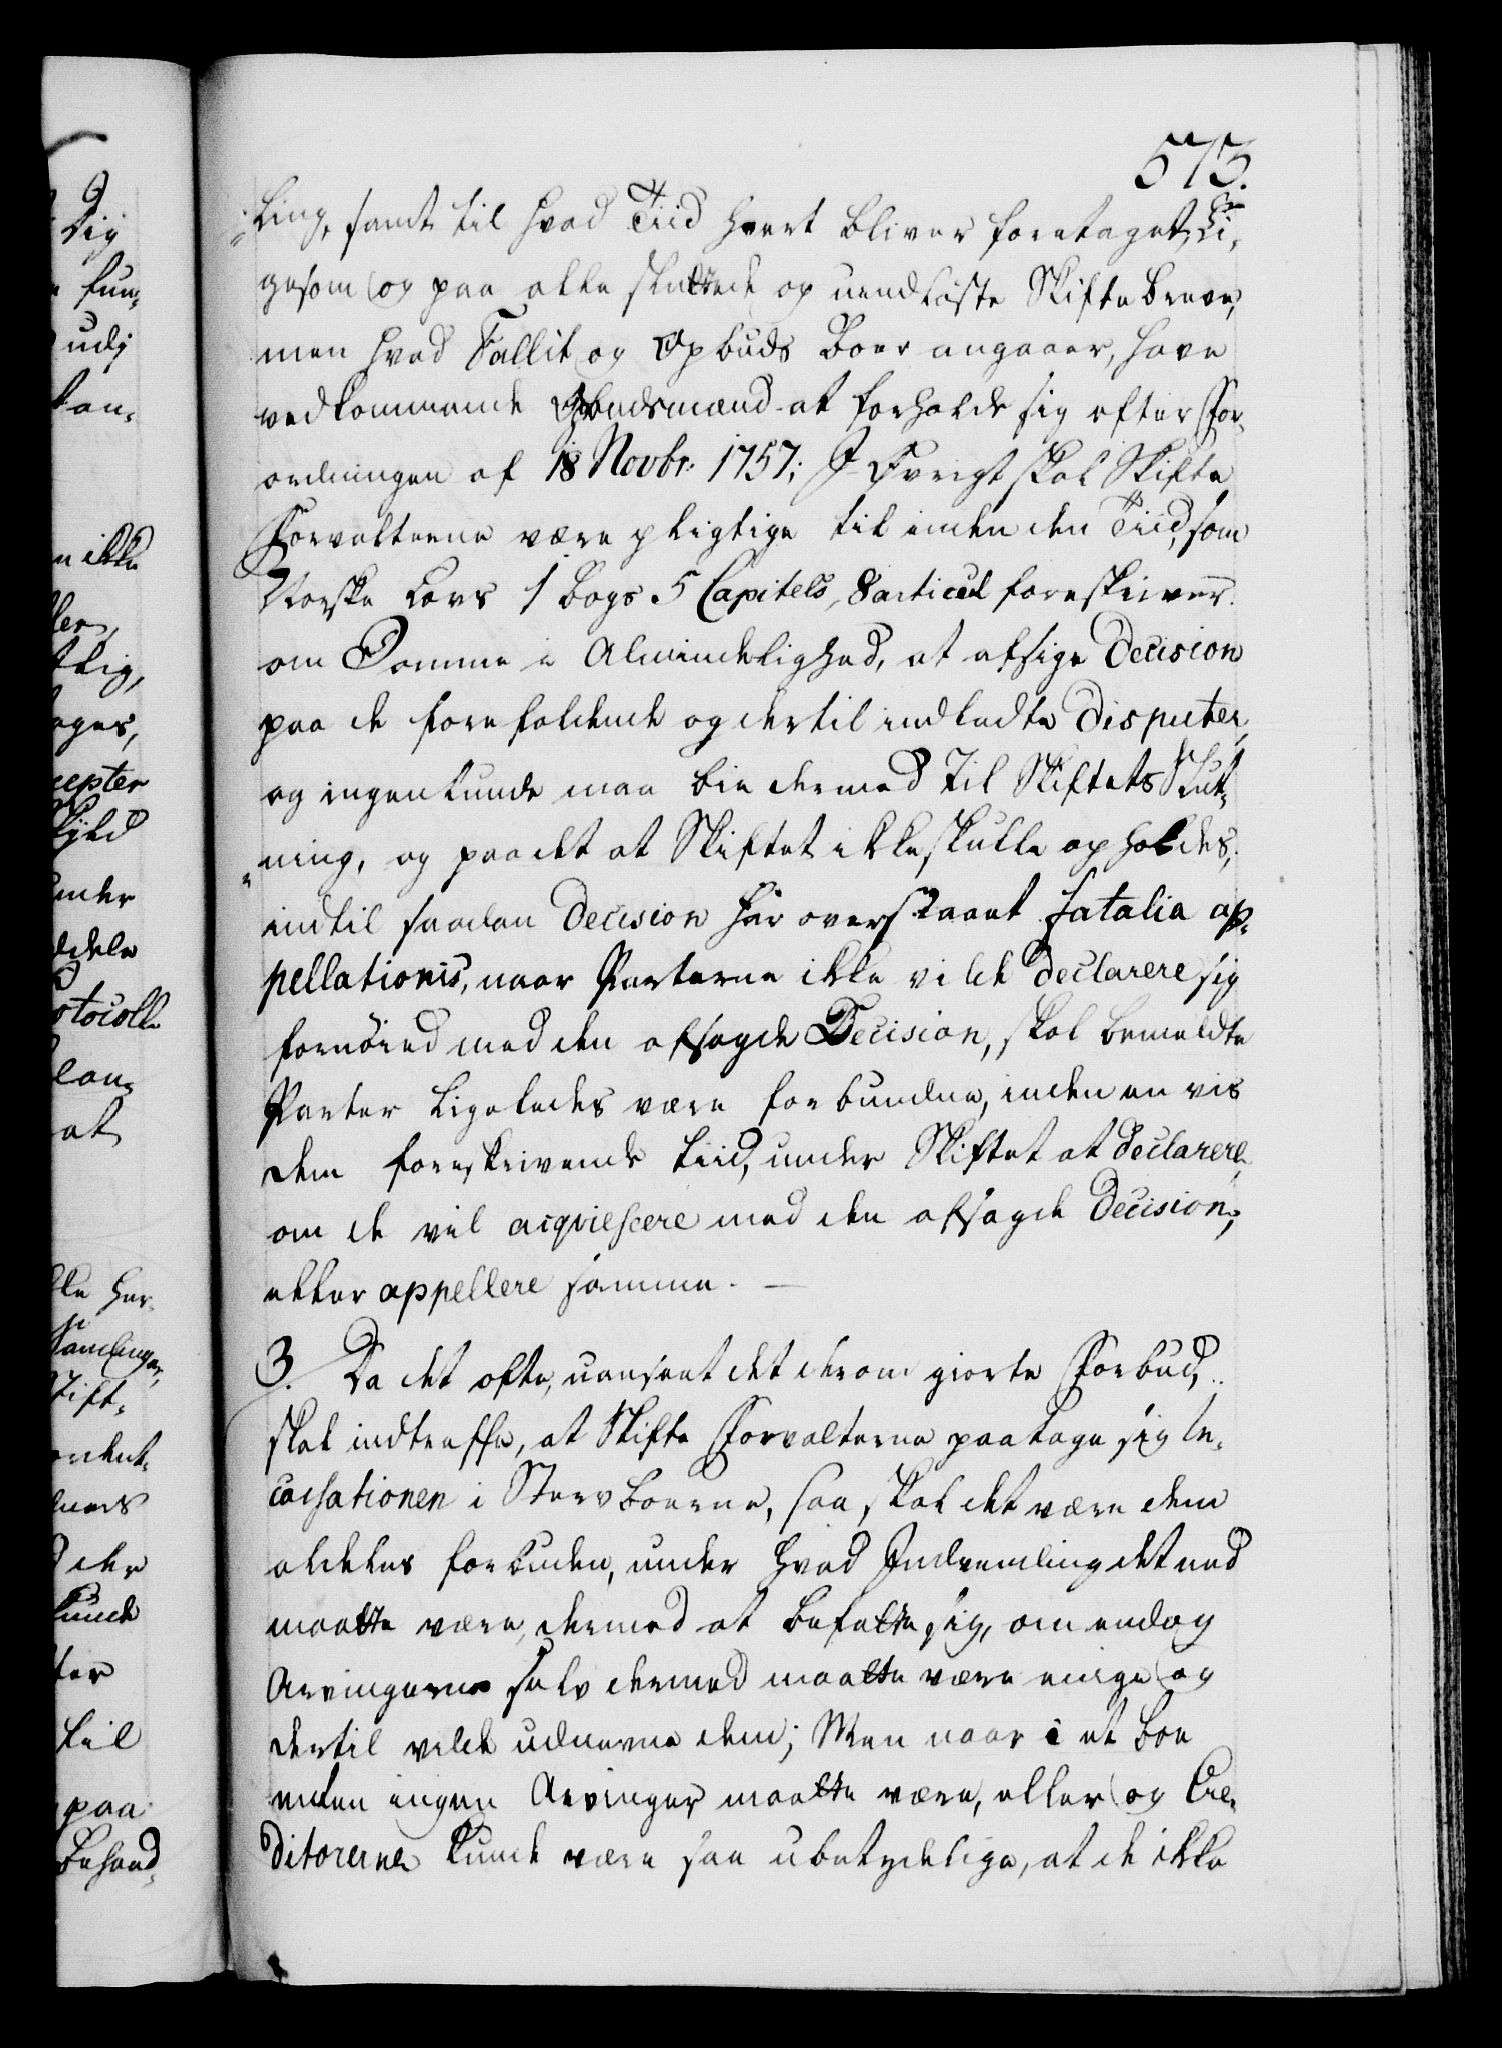 573.
ling, samt til hvad Tiid hvert bliver foretaget, li-
gesom og paa alle sluttede og uendliste Skifte breve,
men hvad Fallit og Opbuds Boer angaaer, have
vedkommende Opbudsmænd at forholde sig efter For-
ordningen af 18 Novbr. 1757; I Øvrigt skal Skifte
Forvalterne være pligtige til inden den Tiid, som
Norske Lovs 1 bogs 5 Capitels, 8 articul foreskriver
om Domme i Almindelighed, at afsige Decision
paa de forefaldende og dertil indladte Disputer,
og ingenlunde maa bie dermed til Skiftets Slut-
ning, og paa det at Skiftet ikke skulle opholdes,
indtil saadan Decision har overstaaet fatalia ap-
pellationis, naar Parterne ikke vilde declarere sig
fornøied med den afsagde Decision, skal bemeldte
Parter ligeledes være forbundne, inden en vis
dem foreskrivende tiid, under Skiftet at declarere,
om de vil acqviescere med den afsagde Decision,
eller appellere samme. —
3. Da det ofte, uanseet det derom giorte Forbud,
skal indtreffe, at Skifte Forvalterne paatage sig In-
cassationen i Stervboerne, saa skal det være dem
aldeles forbuden, under hvad Indvending det end
maatte være, dermed at befatte sig, om endog
Arvingerne selv dermed maatte være enige og
dertil vilde udnevne dem; Men naar i et boe
enten ingen Arvinger maatte være, eller og Cre-
ditorerne kunde være saa ubetydelige, at de ikke